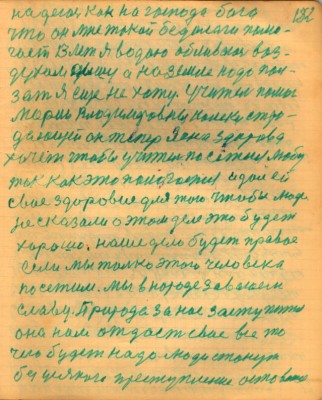 182
надеюсь как на господа бога
что он мне такой без денег помо-
гает Я водою обливаюсь воз-
духом дышу а на земле надо пол-
зат я еще не хожу. Учитель помог
Марии Владимировны колеку стра-
дающей он теперь Я она здорова
хочет чтобы учитель посетил
так как это полагается идал ей
свое здоровие для того чтобы люди
сказали о этом дело это будет
хорошо. наше дело будет правое
если мы толко этого человека
посетим. Мы в народе завоюем
славу. Природа за нас заступится
она нам отдаст свое все то
что будет надо люди станут
без всякого преступления